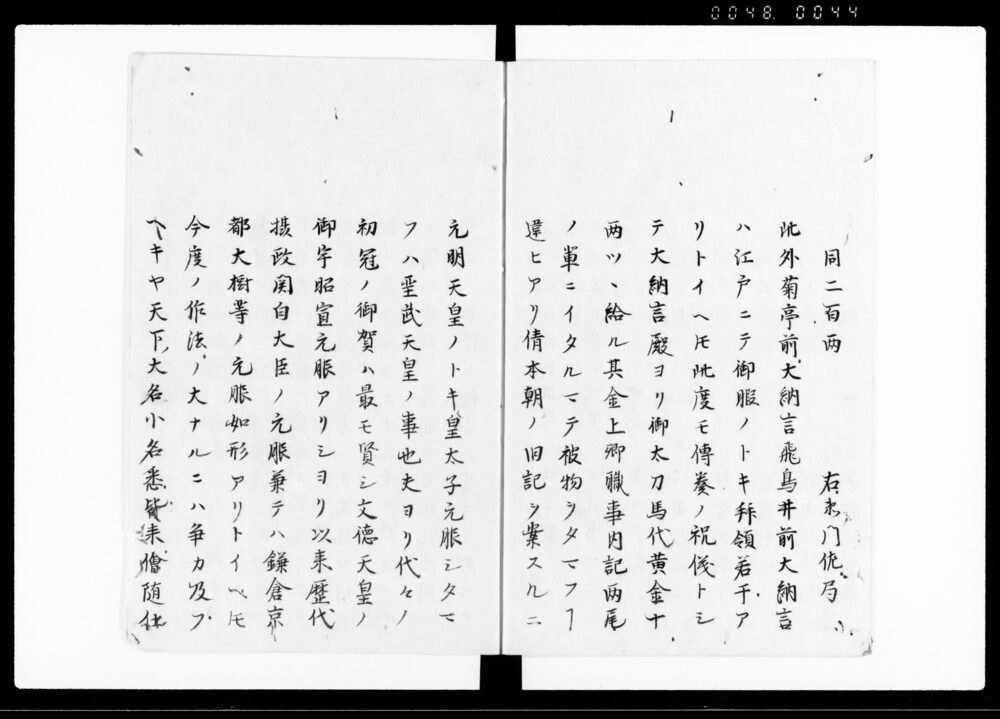 0048. 0044
同二百両 右衛門佐局
此外菊亭前大納言飛鳥井前大納言
ハ江戸ニテ御暇ノトキ拝領若干ア
リトイヘ𪜈此度モ傳奏ノ祝儀トシ
テ大納言殿ヨリ御太刀馬代黄金十
両ツヽ給ル其余上卿職事内記両尾
ノ輩ニイタルマテ被物ヲタマフヿ
違ヒアリ倩本朝ノ旧記ヲ案スルニ
元明天皇ノトキ皇太子元服シタマ
フハ聖武天皇ノ事也夫ヨリ代々ノ
初冠ノ御賀ハ最モ賢シ文徳天皇ノ
御宇昭宣元服アリシヨリ以来歴代
摂政関白大臣ノ元服兼テハ鎌倉京
都大樹等ノ元服如形アリトイヘ𪜈
今度ノ作法ノ大ナルニハ争カ及フ
ヘキヤ天下ノ大名小名悉皆来